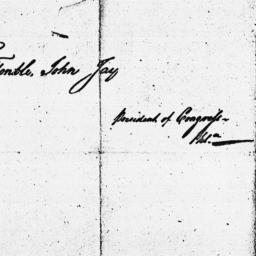 Honble. John Jay
President of Congress
Phl.a